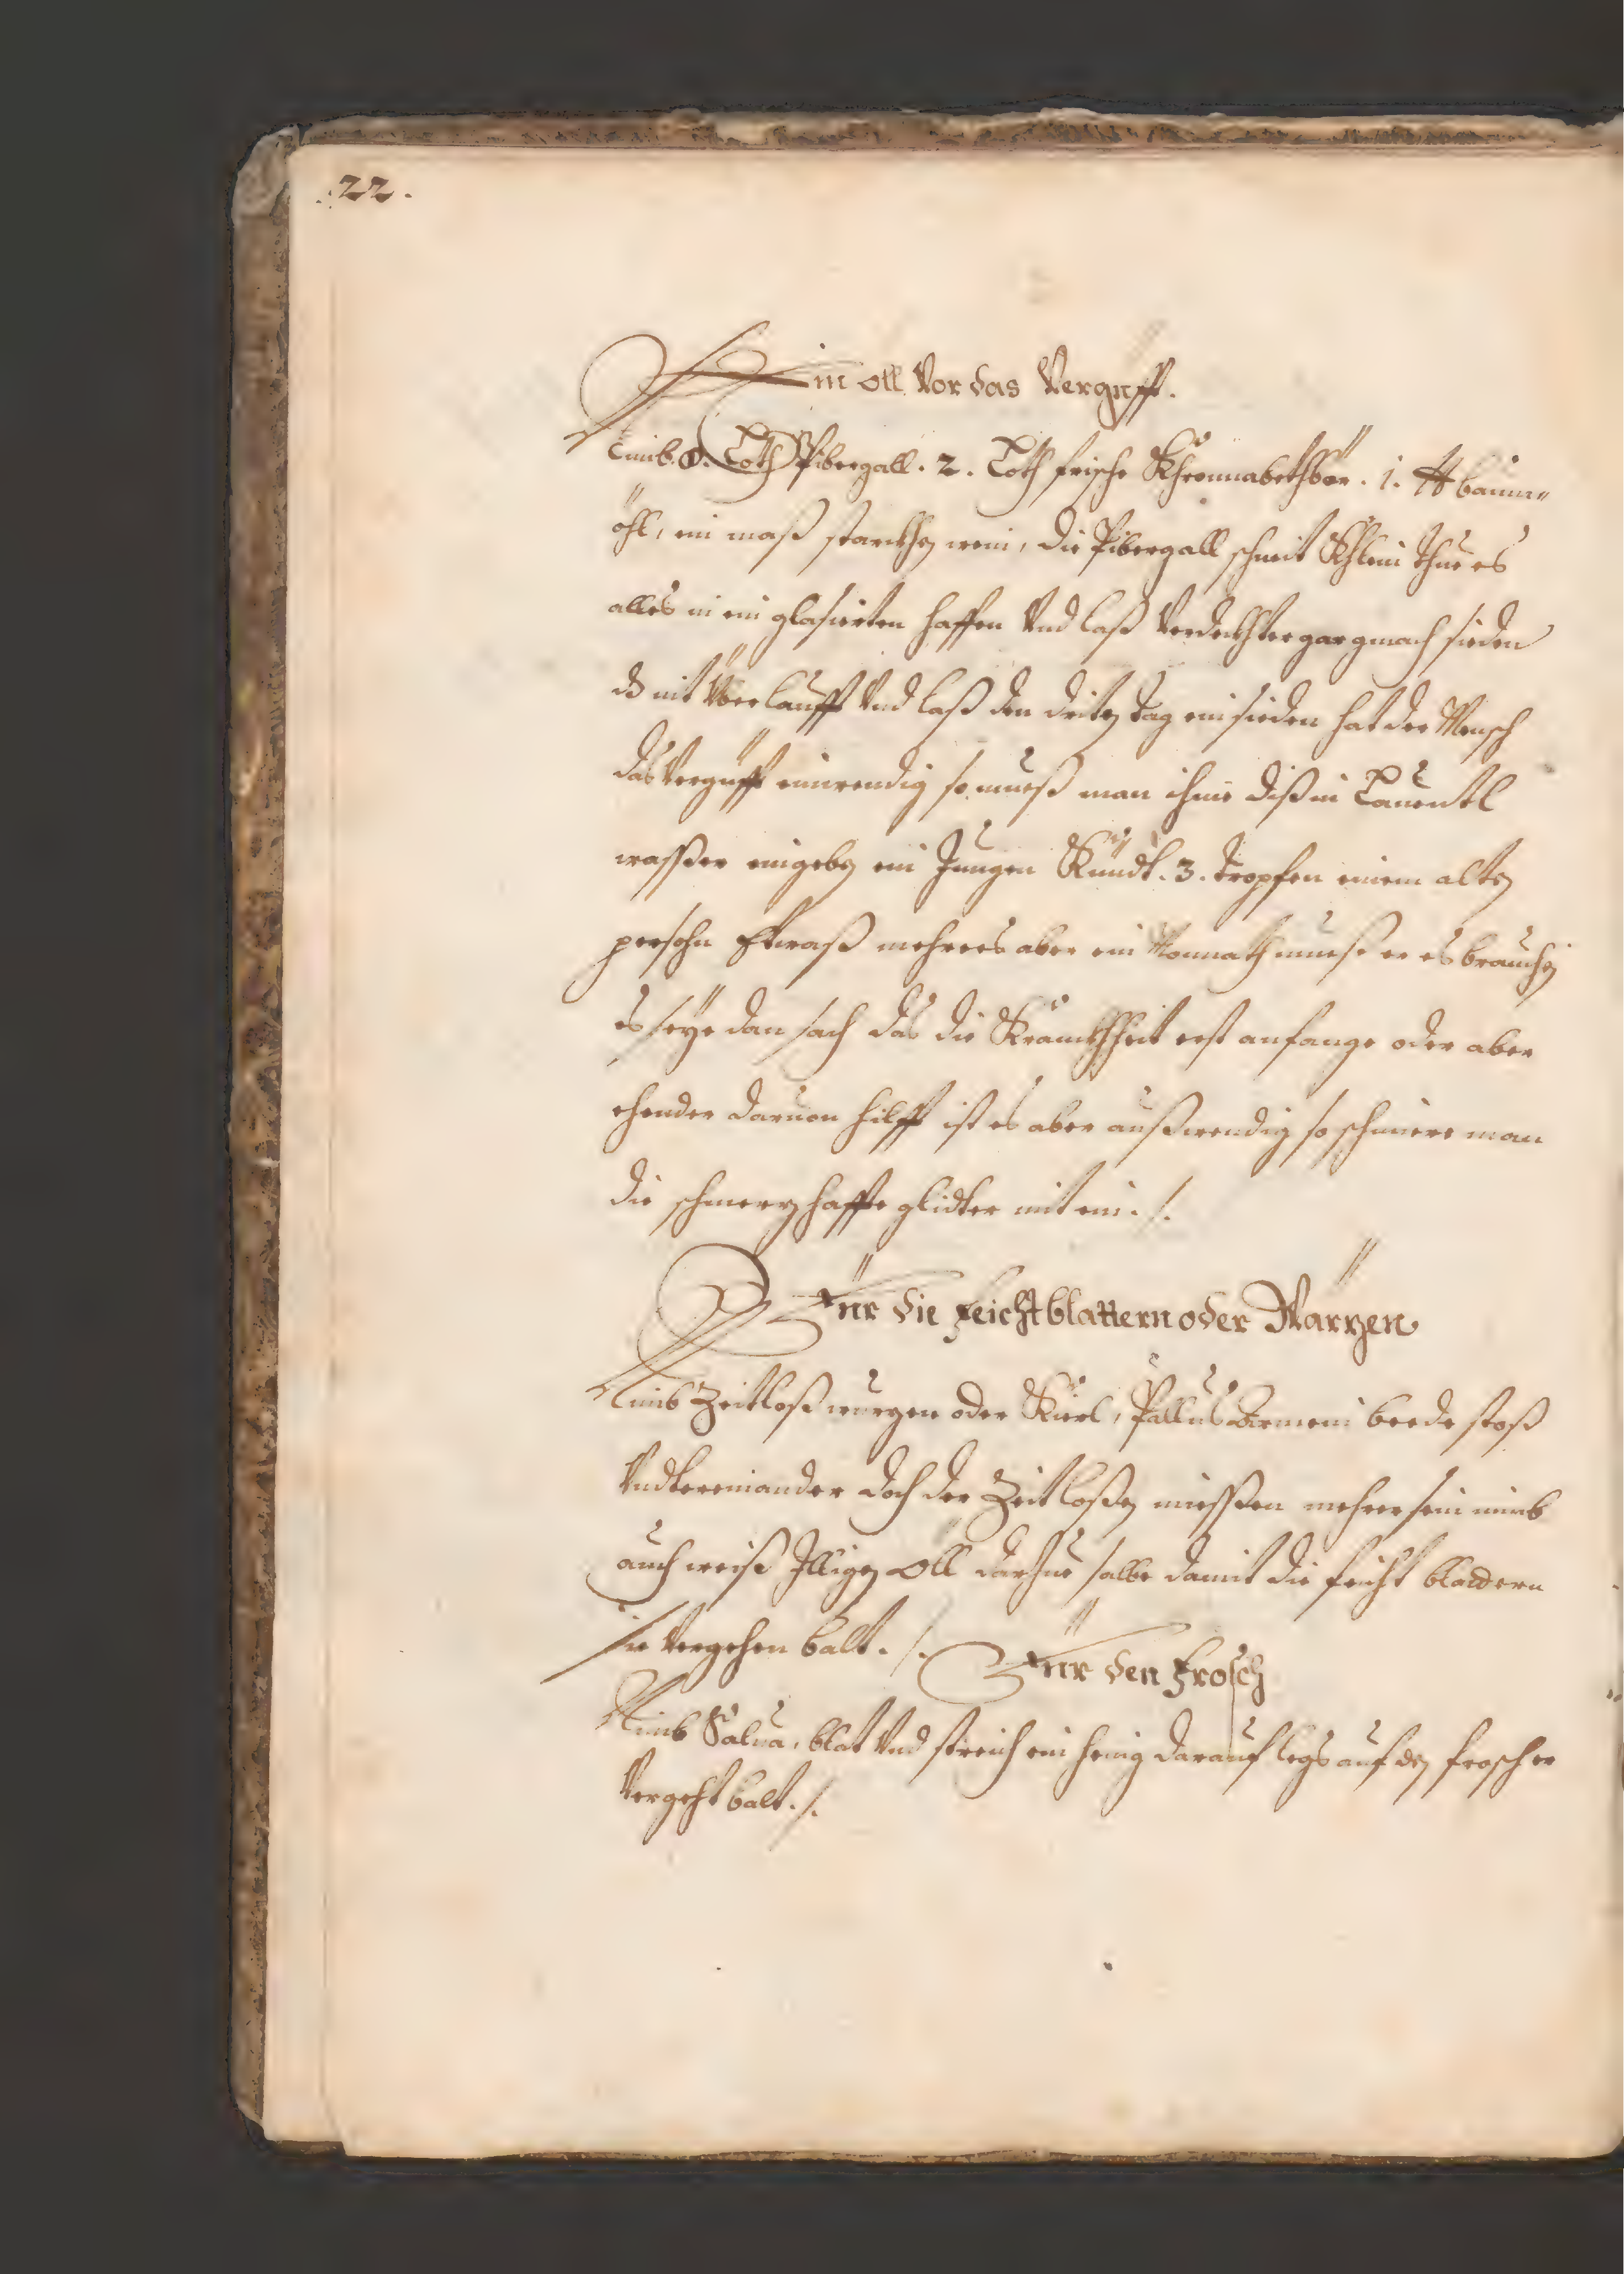 .22.
Ein öll Vor das Vergifft.
Nimb. 8. Loth Pibergall. 2. Loth frische Khronnabethbör. 1. ℔ baum=
öhl, ein maß starckhen wein, die Pibergall schneit Khlein thue es
alles in ein glasierten haffen Vnd laß Verdeckhter gar gmach sieden
ds nit Überlaufft Vnd laß den driten tag ein sieden hat der Mensch
das Vergüfft einwendig so mueß man ihme diß in Lauentl
wasser eingeben ein Jungen Kündt. 3. tropfen einem alten
persohn Etwaß mehrers aber ein Monnath mueß er es brauchen
es seÿe dan sach das die Kranckhheit erst anfange oder aber
ehender daruon hilfft ist es aber außwendig so schmiere man
die schmerzhaffte glidter mit ein ./.
Für die Feichtblattern oder Warzen
Nimb Zeitloß wurzen oder Kierl, Pollus Armeni beede stoß
Vndtereinander doch der Zeitloßen miessen mehrer sein nimb
auch weiß Illigen Öll darzue salbe damit die feicht bladern
sie Vergehen balt ./.
Für den Frosch
Nimb Salua, blat Vnd streich ein henig darauf legs auf den frosch er
Vergeht balt ./.